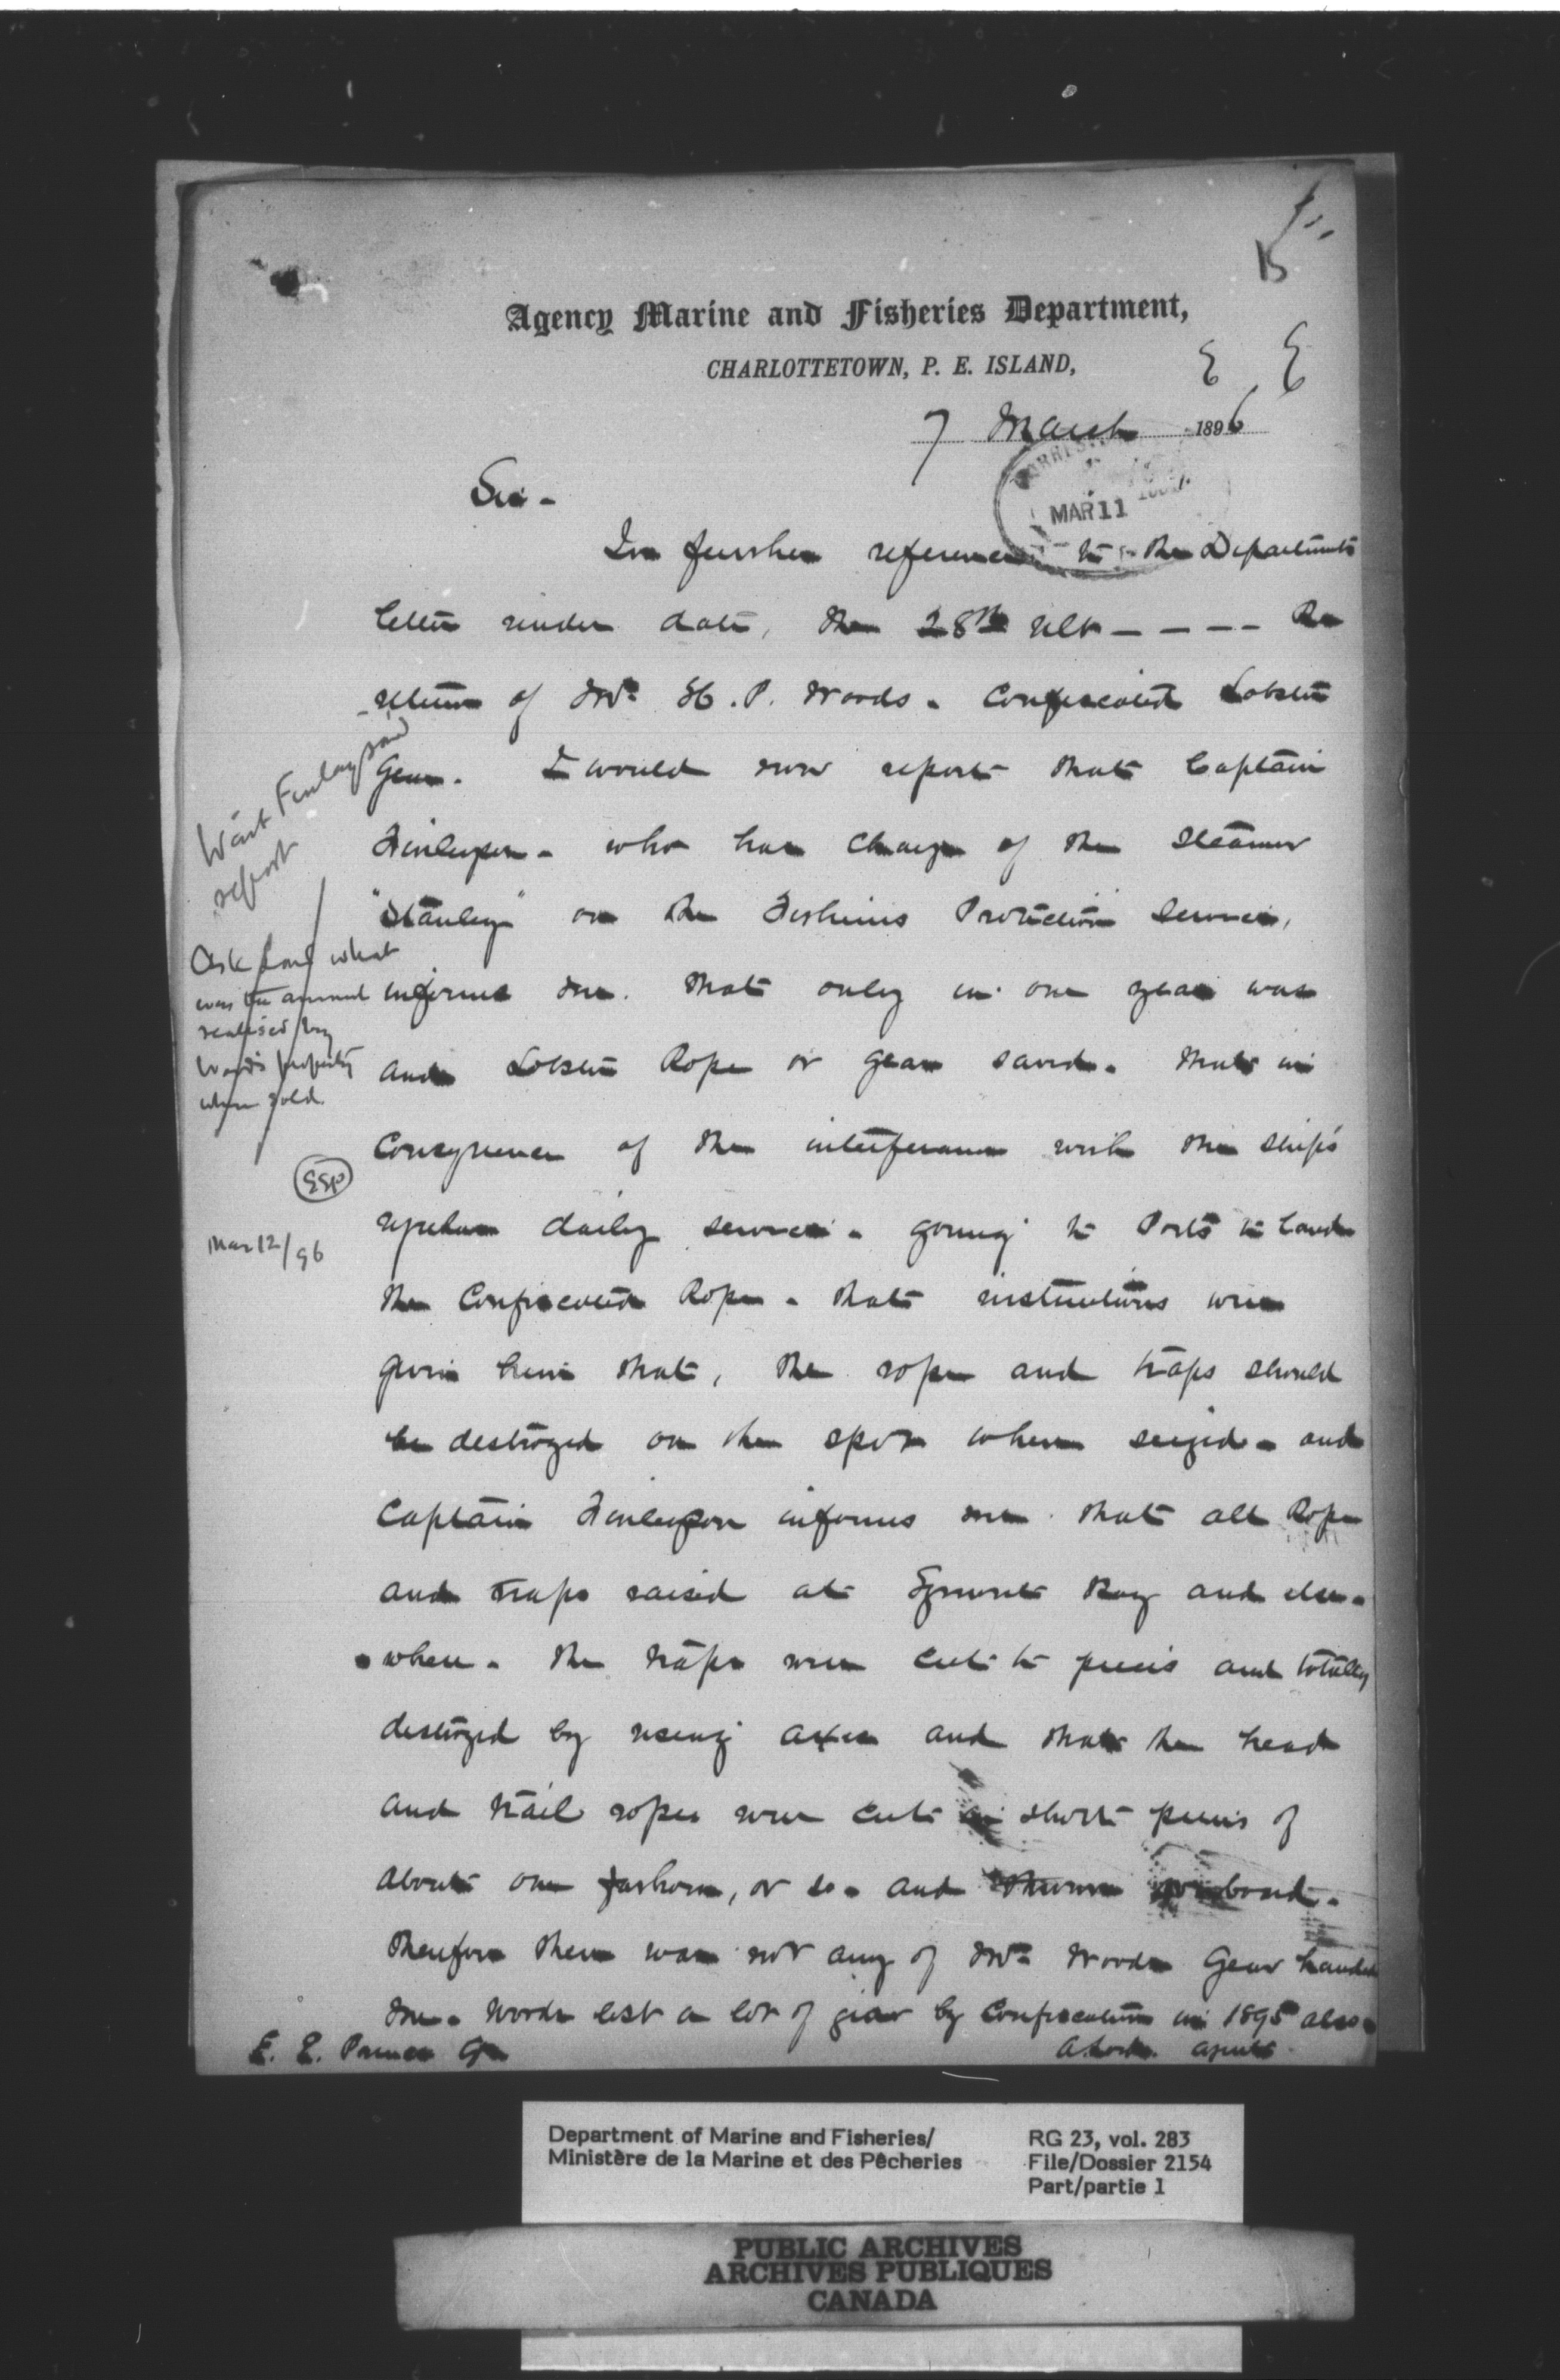 15
Agency Marine and Fisheries Department,
CHARLOTTETOWN, P. E. ISLAND,
7 March 1896
MAR 11
Sir -
In further reference to the Departments
letter under date, the 28th ult - - - - Re
return of Mr. H. P. Woods. Confiscated Lobster
Gear. I would now report that Captain
Finlayson - who has charge of the Steamer
"Stanley" on the Fisheries Protection Service,
informs me. that only in one year was
and Lobster Rope or gear saved. that in
Consequence of the interference with the ship's
regular daily service - going to Ports to land
the Confiscated Rope - that instructions were
given him that, the rope and traps should
be destroyed on the spot where seized - and
Captain Finlayson informs me that all Rope
and traps raised at Egmont Bay and else-
-where - the traps were cut to pieces and totally
destroyed by using axes and that the head
and tail ropes were cut in short pieces of
about one fathom, or so - and thrown overboard.
therefore there was not any of Mr. Woods Gear handed
me. Woods lost a lot of gear by Confiscation in 1895 also.
E. E. Prince Esq
A. Lord. agent
Wait Finlayson's
report
Ask Lord what
was the amount
realised by
Wood's property
when sold.
EEP
Mar 12/96
Department of Marine and Fisheries/
Ministère de la Marine et des Pêcheries
RG 23, vol. 283
File/Dossier 2154
Part/partie 1
PUBLIC ARCHIVES
ARCHIVES PUBLIQUES
CANADA